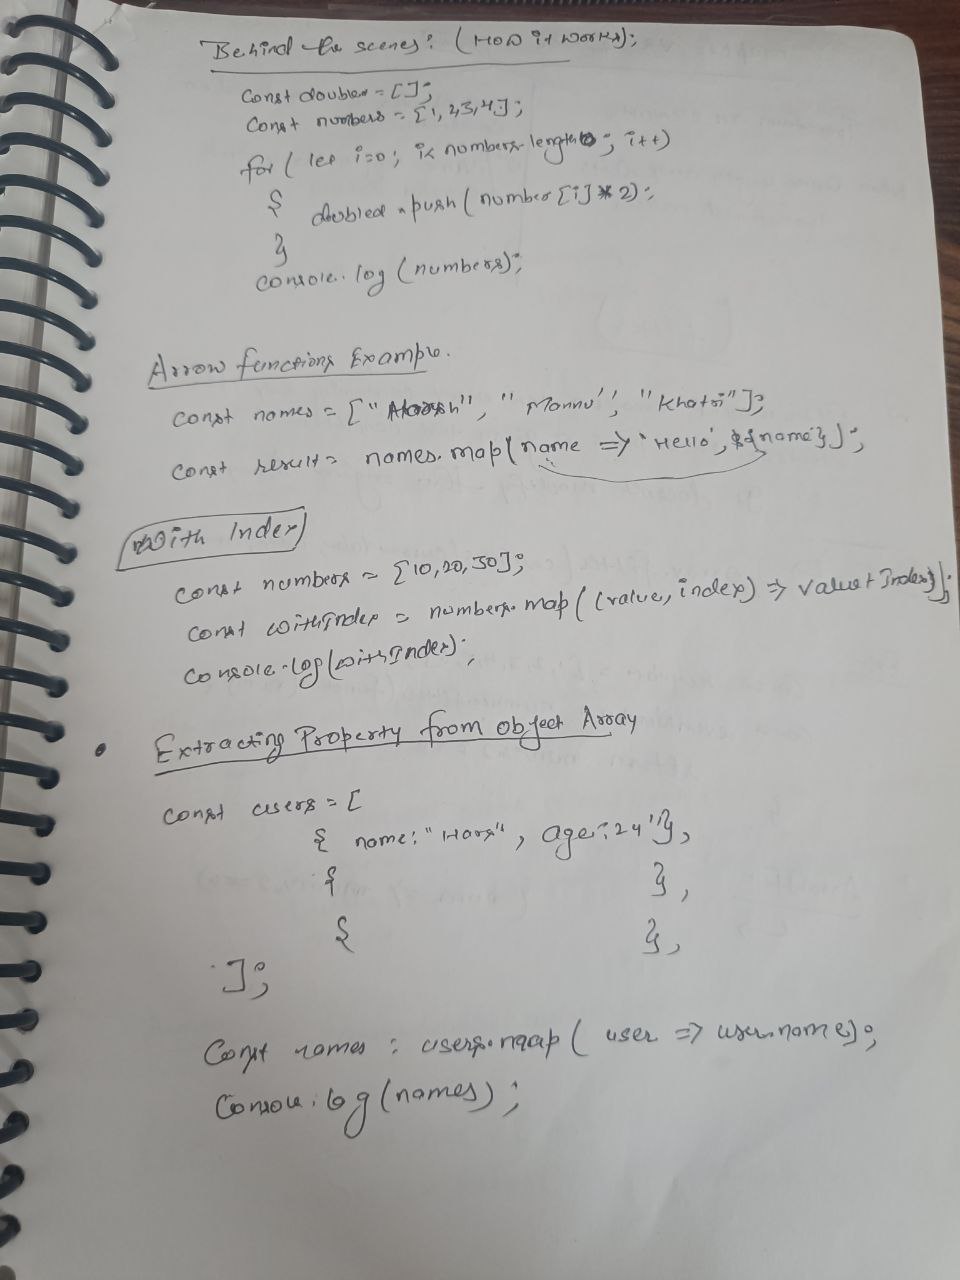 Behind the scenes: (How it works);
Const doubled = [];
Const numbers = [1, 2,3,4];
for ( let i=0; i< numbers.length; i++)
{ doubled.push(number[i] * 2);
}
console.log (numbers);
Arrow functions Example.
const names = [" ", "Mannu", "Khatri"];
const result = names.map(name => `Hello', ${name}`);
With Index
const numbers = [10,20,30];
const withIndex = numbers.map((value, index) => value + Index});
console.log(withIndex);
• Extracting Property from object Array
const users = [
{ name: " ", age: 24"},
{ },
{ },
];
Const names : users.map( user => user.name);
Console.log(names);